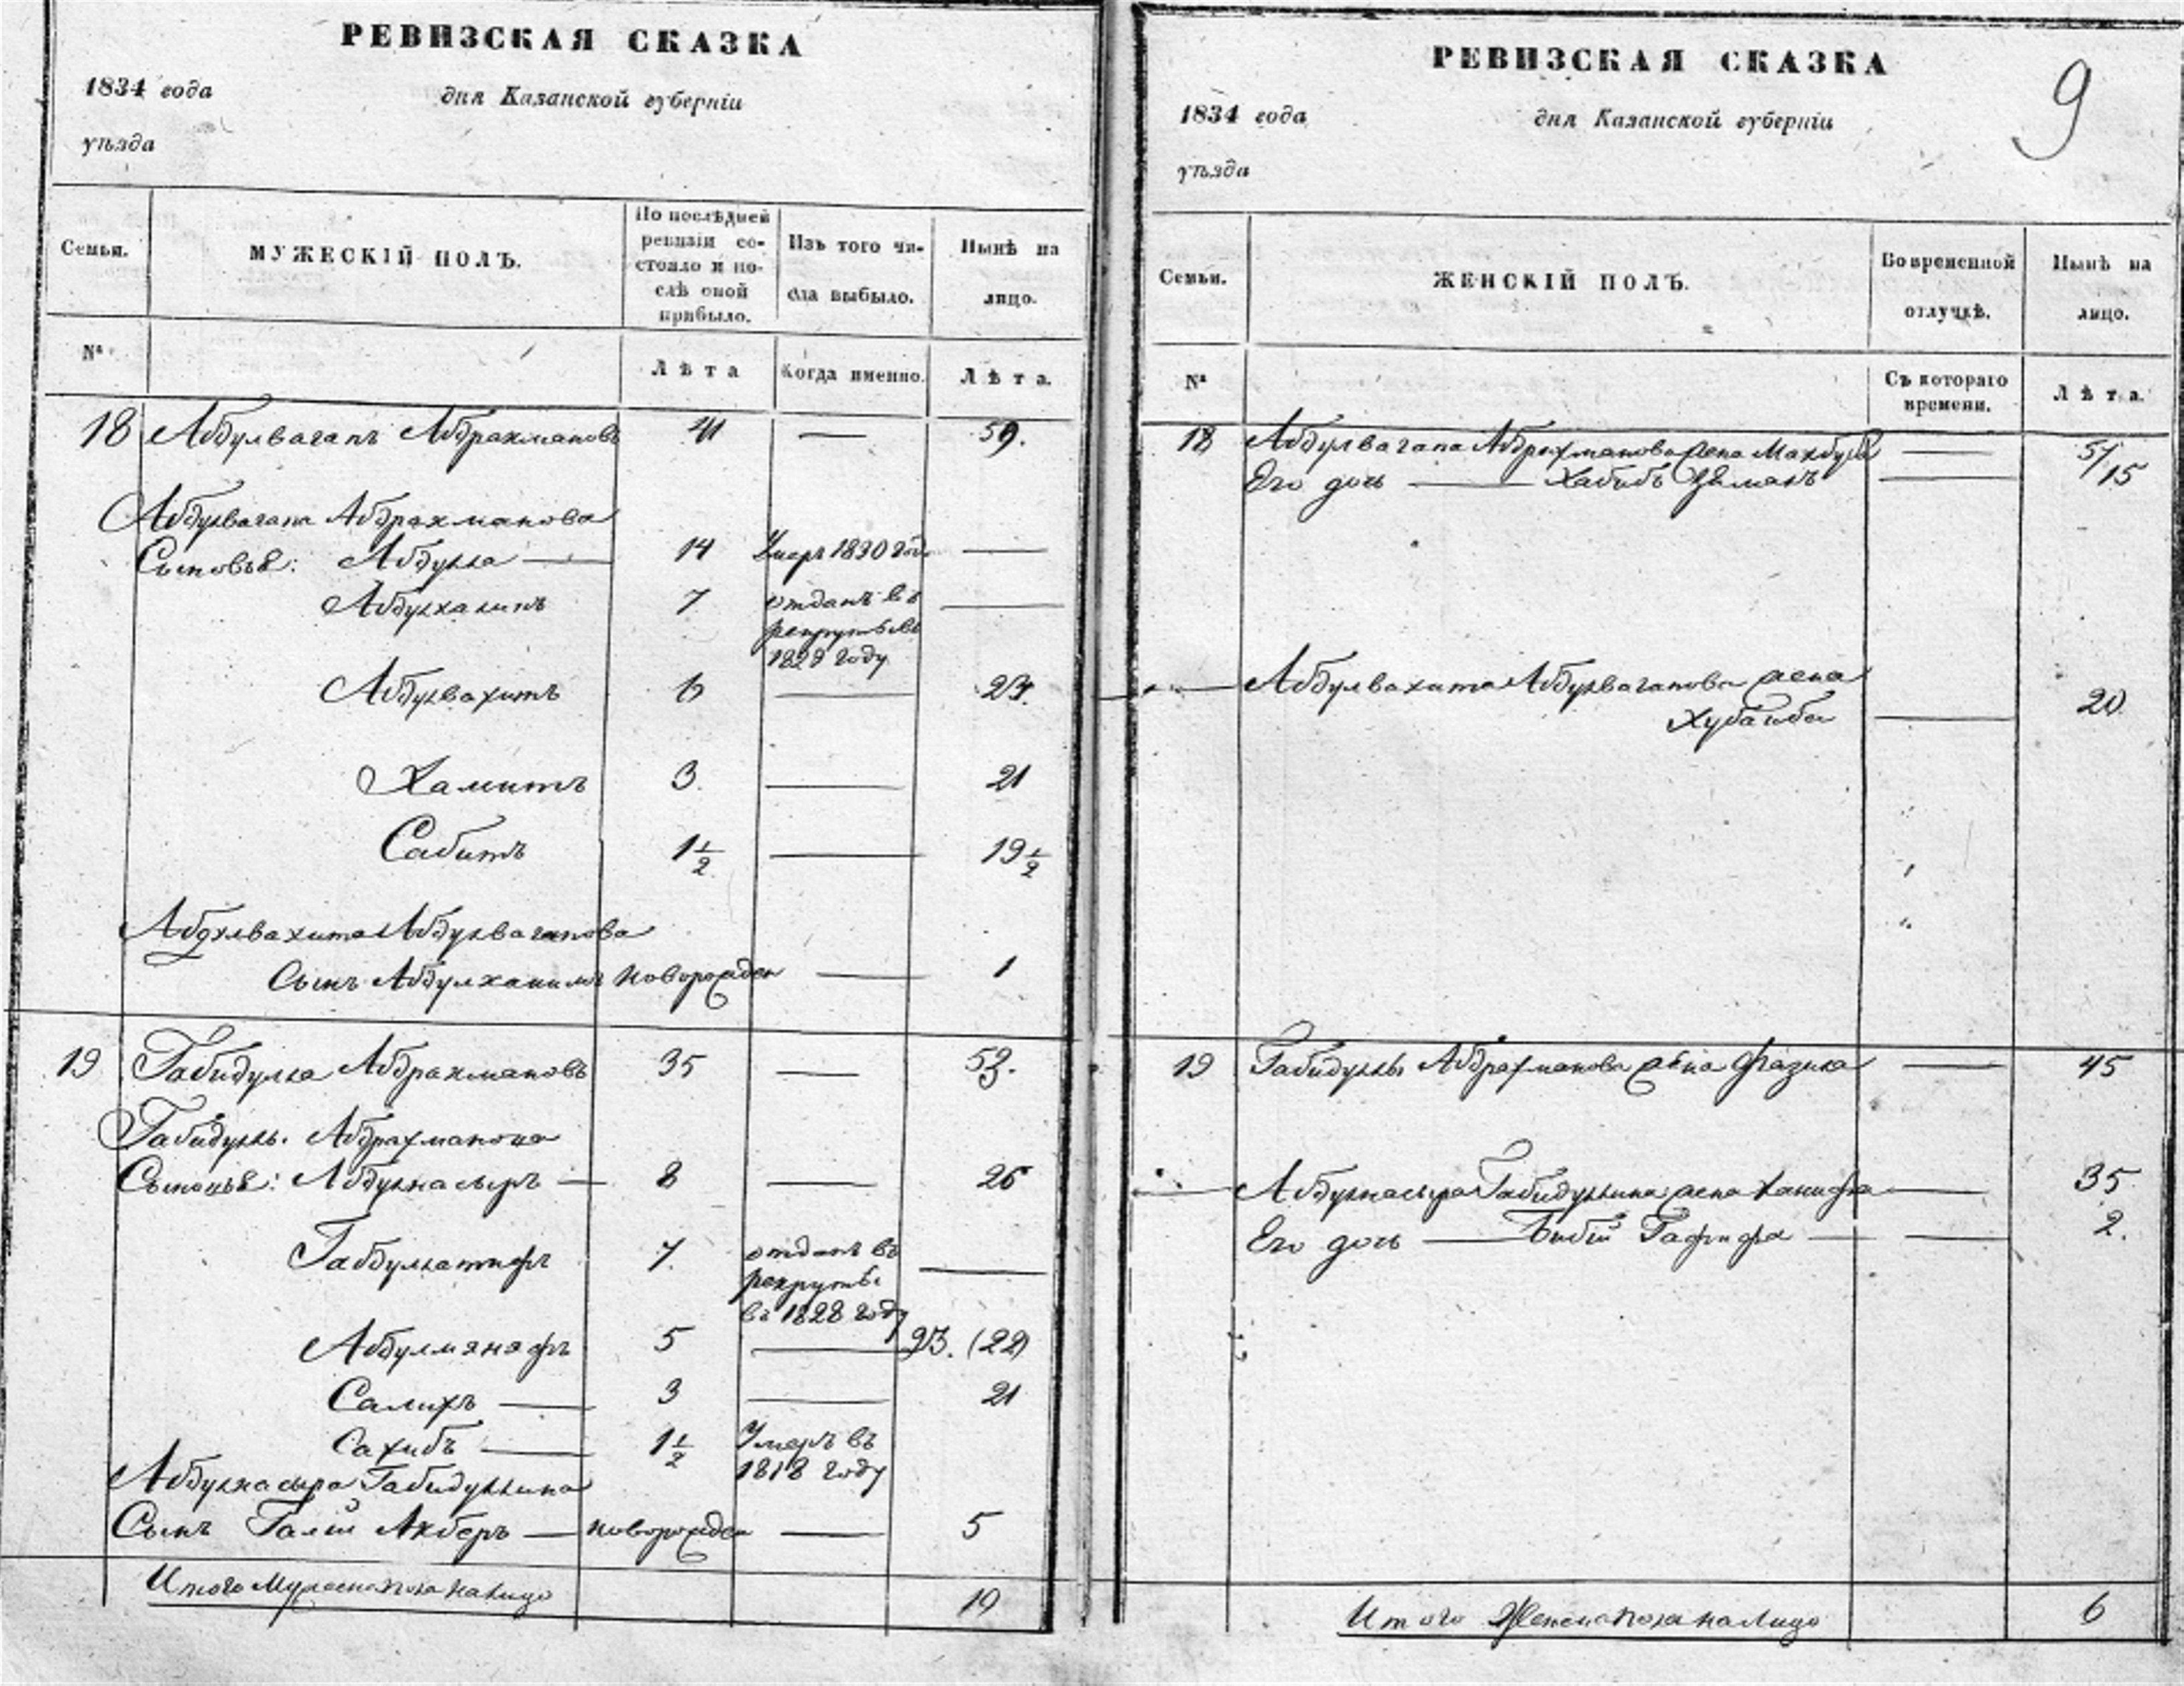 РЕВИЗСКАЯ СКАЗКА
1834 года дня Казанской губерніи
уѣзда
Семьи.
МУЖЕСКІЙ ПОЛЪ.
По послѣдней ревизіи со-
стояло и по-
слѣ оной
прибыло.
Изъ того чи-
сла выбыло.
Нынѣ на
лицо.
№
Лѣта
Когда именно.
Лѣта.
18 Абдулвагапъ Абдрахмановъ 41 — 59.
Абдулвагапа Абдрахманова
Сыновья: Абдулла — 14 Умеръ 1830 году —
Абдулхалипъ 7 отданъ въ —
рекруты въ
1829 году
Абдулвахитъ 6 — 24.
Хамитъ 3. — 21
Сабитъ 1 1/2 — 19 1/2
Абдулвахита Абдулвагапова
Сынъ Абдулханимъ новорожден — 1
19 Габидулла Абдрахмановъ 35 — 53.
Габидуллы Абдрахманова
Сыновья: Абдулнасыръ — 8 — 26
Габдуллатифъ 7. отданъ въ —
рекруты
въ 1828 году
Абдулмянафъ 5 — 23. (22)
Салихъ — 3 — 21
Сахибъ — 1 1/2 Умеръ въ
1818 году
Абдулнасыра Габидуллина
Сынъ Галій Акберъ — новорожден — 5
Итого Мужеска пола налицо 10
РЕВИЗСКАЯ СКАЗКА
9
1834 года дня Казанской губерніи
уѣзда
Семьи.
ЖЕНСКІЙ ПОЛЪ.
Во временной
отлучкѣ.
Нынѣ на
лицо.
№
Съ котораго
времени.
Лѣта.
18 Абдулвагапа Абдрахманова жена Махбуба — 51
Его дочь — Хабибъ Зяманъ — 15
— Абдулвахита Абдулвагапова жена
Хубаиба — 20.
19 Габидуллы Абдрахманова жена Фазила — 45
— Абдулнасыра Габидуллина жена Ханифа — 35
Его дочь — Бибій Гафифа — 2.
Итого Женска пола на Лицо 6